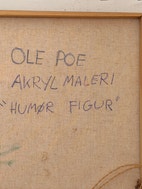 OLE POE
AKRYL MALERI
"HUMØR FIGUR"